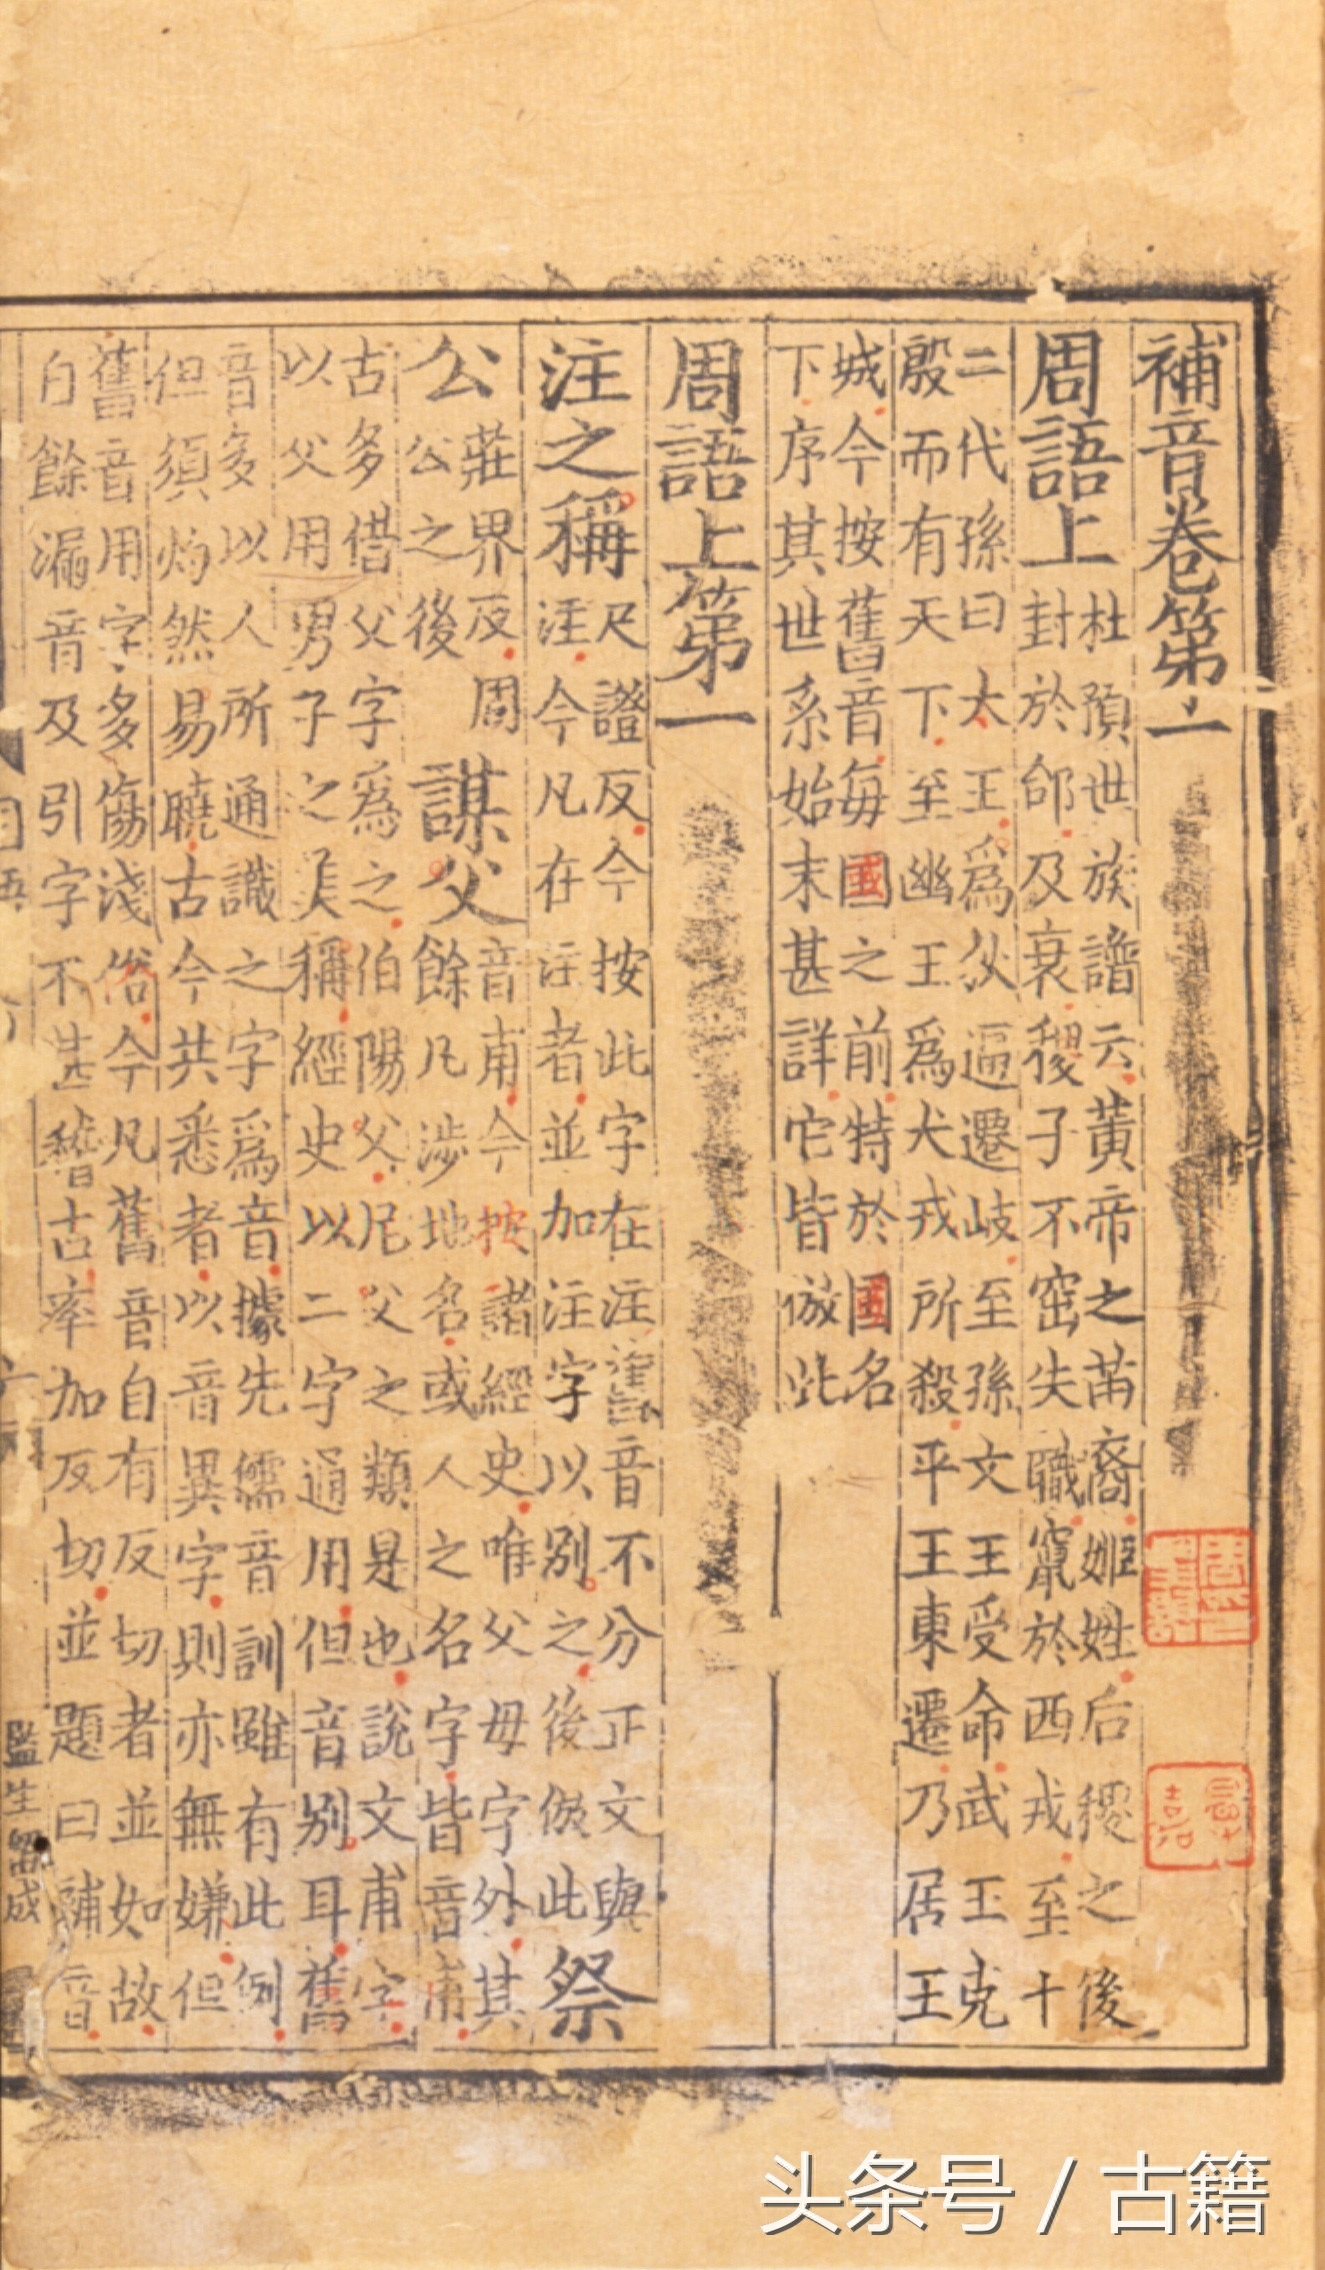 補音卷第一
周語上
杜預世族譜云黃帝之苗裔姬姓后稷之後
封於邰及衰稷子不窋失職竄於西戎至十
二代孫曰太王爲狄逼遷岐至孫文王受命武王克
殷而有天下至幽王爲犬戎所殺平王東遷乃居王
城今按舊音每國之前特於國名
下序其世系始末甚詳它皆倣此
周語上第一
注之稱
尺證反今按此字在注舊音不分正文與
注今凡在注者並加注字以別之後倣此
祭
公
莊界反周
公之後
謀父
音甫今按諸經史唯父母字外其
餘凡涉地名或人之名字皆音甫
古多借父字爲之伯陽父尼父之類是也說文甫字
以父用男子之美稱經史以二字通用但音別耳舊
音多以人所通識之字爲音據先儒音訓雖有此例
但須灼然易曉古今共悉者以音異字則亦無嫌但
舊音用字多傷淺俗今凡舊音自有反切者並如故
自餘漏音及引字不甚稽古率加反切並題曰補音
監生
成
头条号 / 古籍